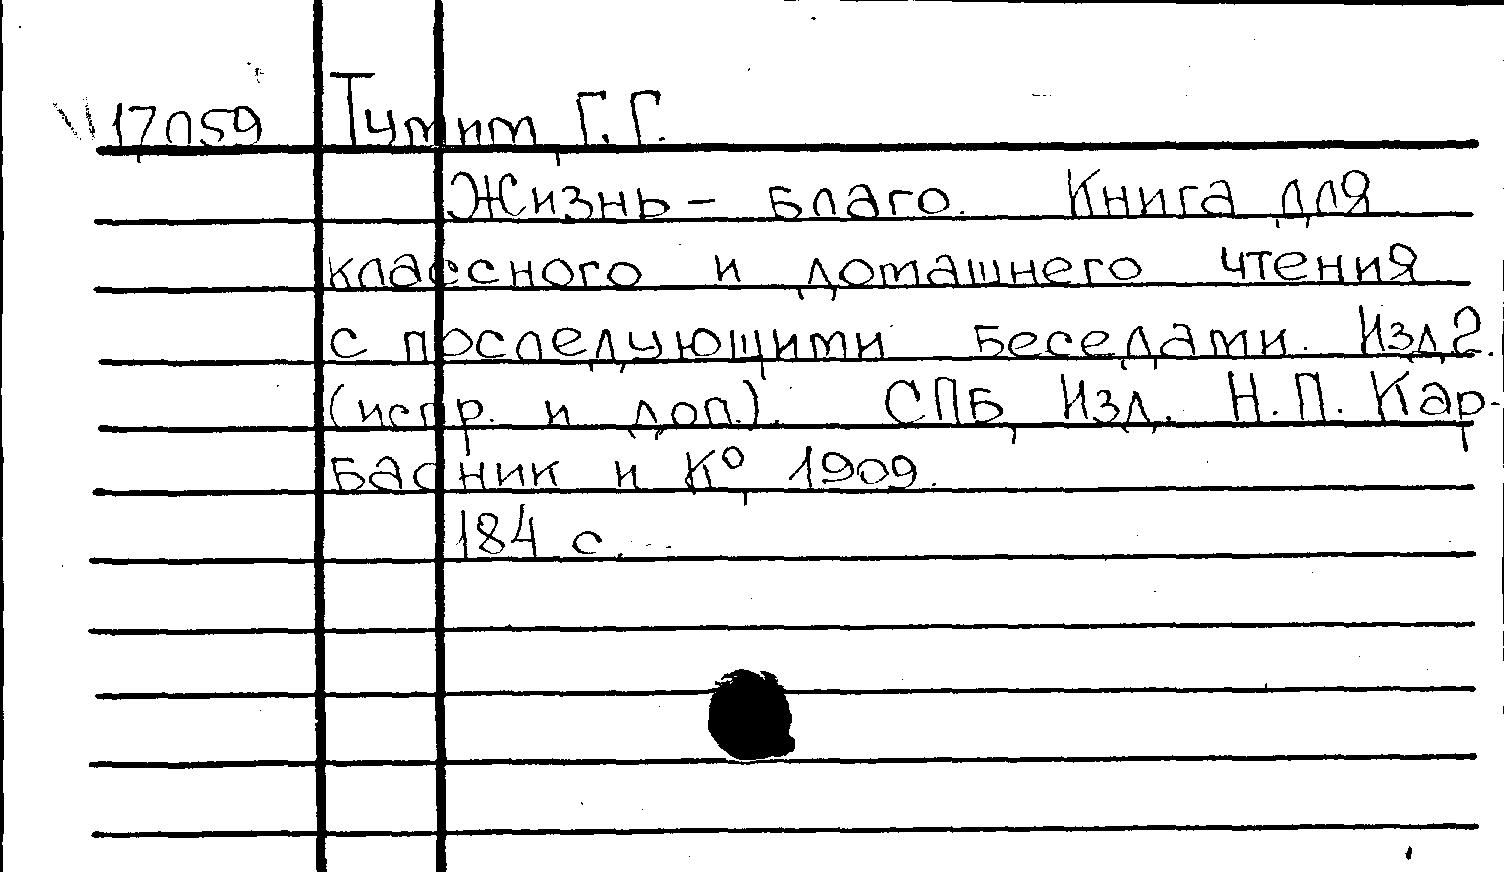 17059 Тумим, Г. Г.
Жизнь - благо. Книга для
классного и домашнего чтения
с последующими беседами. Изд. 2.
(испр. и доп.). СПБ, Изд. Н. П. Кар-
басник и К⁰, 1909.
184 с.